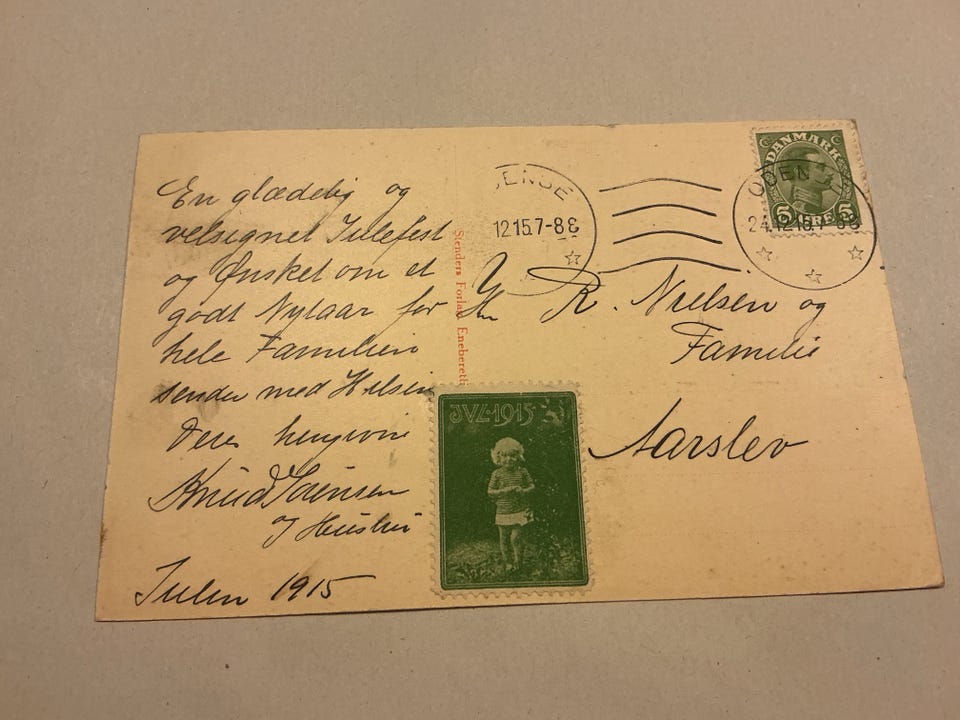 En glædelig og
velsignet Julefest
og Ønsket om et
godt Nytaar for
hele Familien
sender med Hilsen
Deres hengivne
Knud Sørensen
og Hustru
Julen 1915
Stenders Forlag. Eneberettiget
ENSE
12.15.7-8 E
DANMARK
5 ØRE 5
ODENSE
24.12.15.7-8 E
Hr R. Nielsen og
Familie
Aarslev
JUL·1915